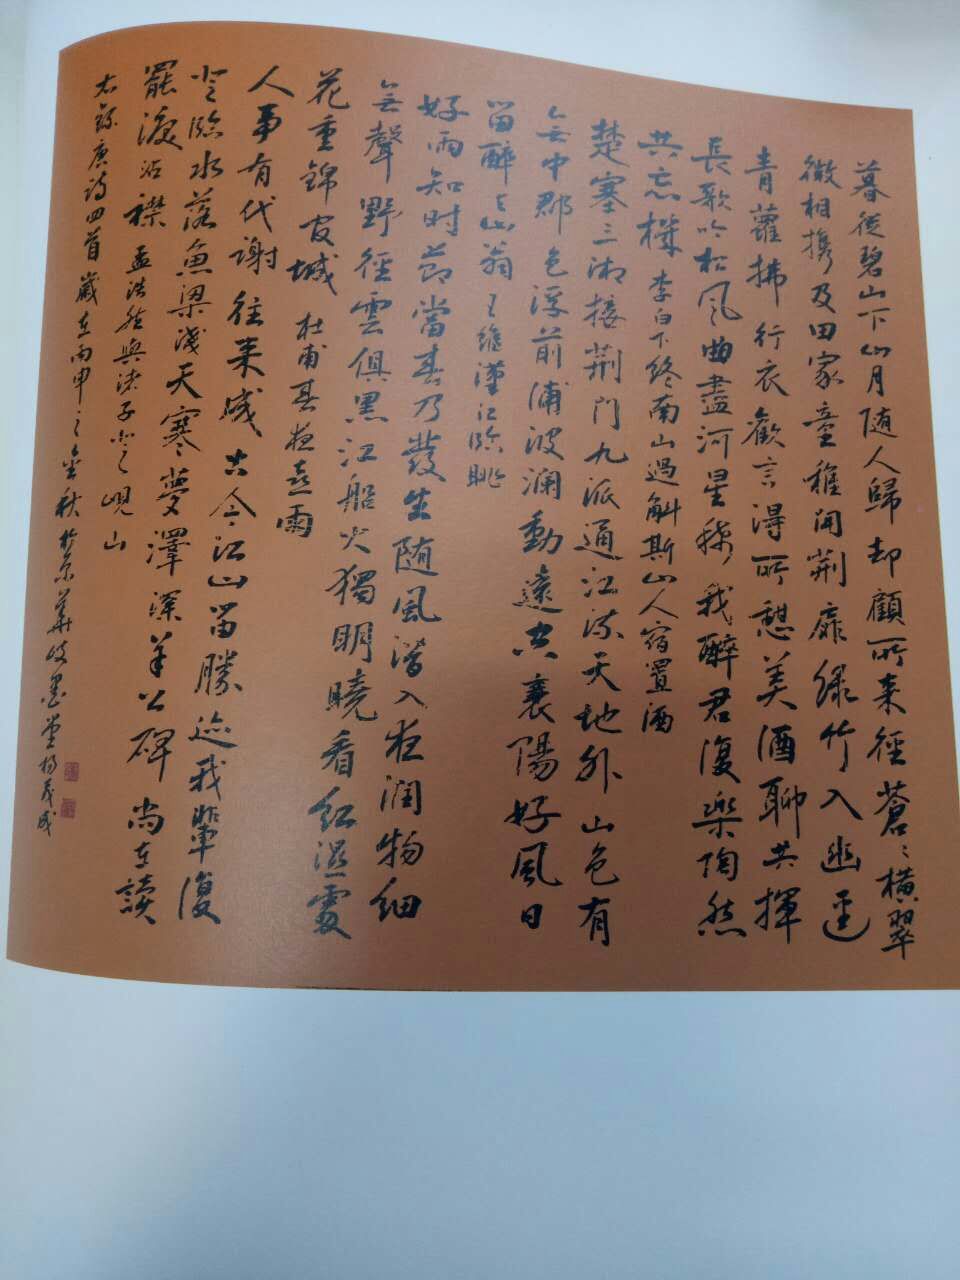 暮從碧山下山月随人歸却顧所来徑蒼〻横翠
微相携及田家童稚開荆扉绿竹入幽逕
青蘿拂行衣歡言淂所憩美酒聊共揮
長歌吟松风曲盡河星稀我醉君復樂陶然
共忘機李白下终南山過斛斯山人宿置酒
楚塞三湘接荆門九派通江流天地外山色有
無中郡邑浮前浦波澜動遠空襄陽好風日
留醉与山翁王維漢江臨眺
好雨知时節當春乃發生随風潛入夜润物细
無聲野徑雲俱黑江船火獨明曉看红濕處
花重錦官城杜甫春夜喜雨
人事有代谢往来成古今江山留勝迹我輩復
登臨水落魚梁淺天寒夢澤深羊公碑尚在讀
罷淚沾襟孟浩然與诸子登岘山
右錄唐诗四首歲在丙申之金秋於京華